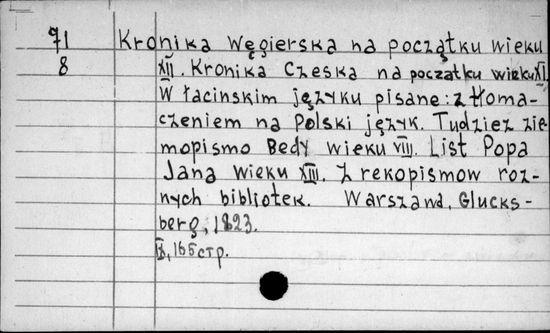 71 Kronika Węgierska na początku wieku
8 XII. Kronika Czeska na początku wieku XI.
W łacinskim języku pisane: z tłoma-
czeniem na Polski język. Tudziez zie
mopismo Bedy wieku VIII. List Popa
Jana wieku XIII. Z rekopismow roz-
nych bibliotek. Warszawa, Glucks-
berg, 1823.
IX, 165 стр.